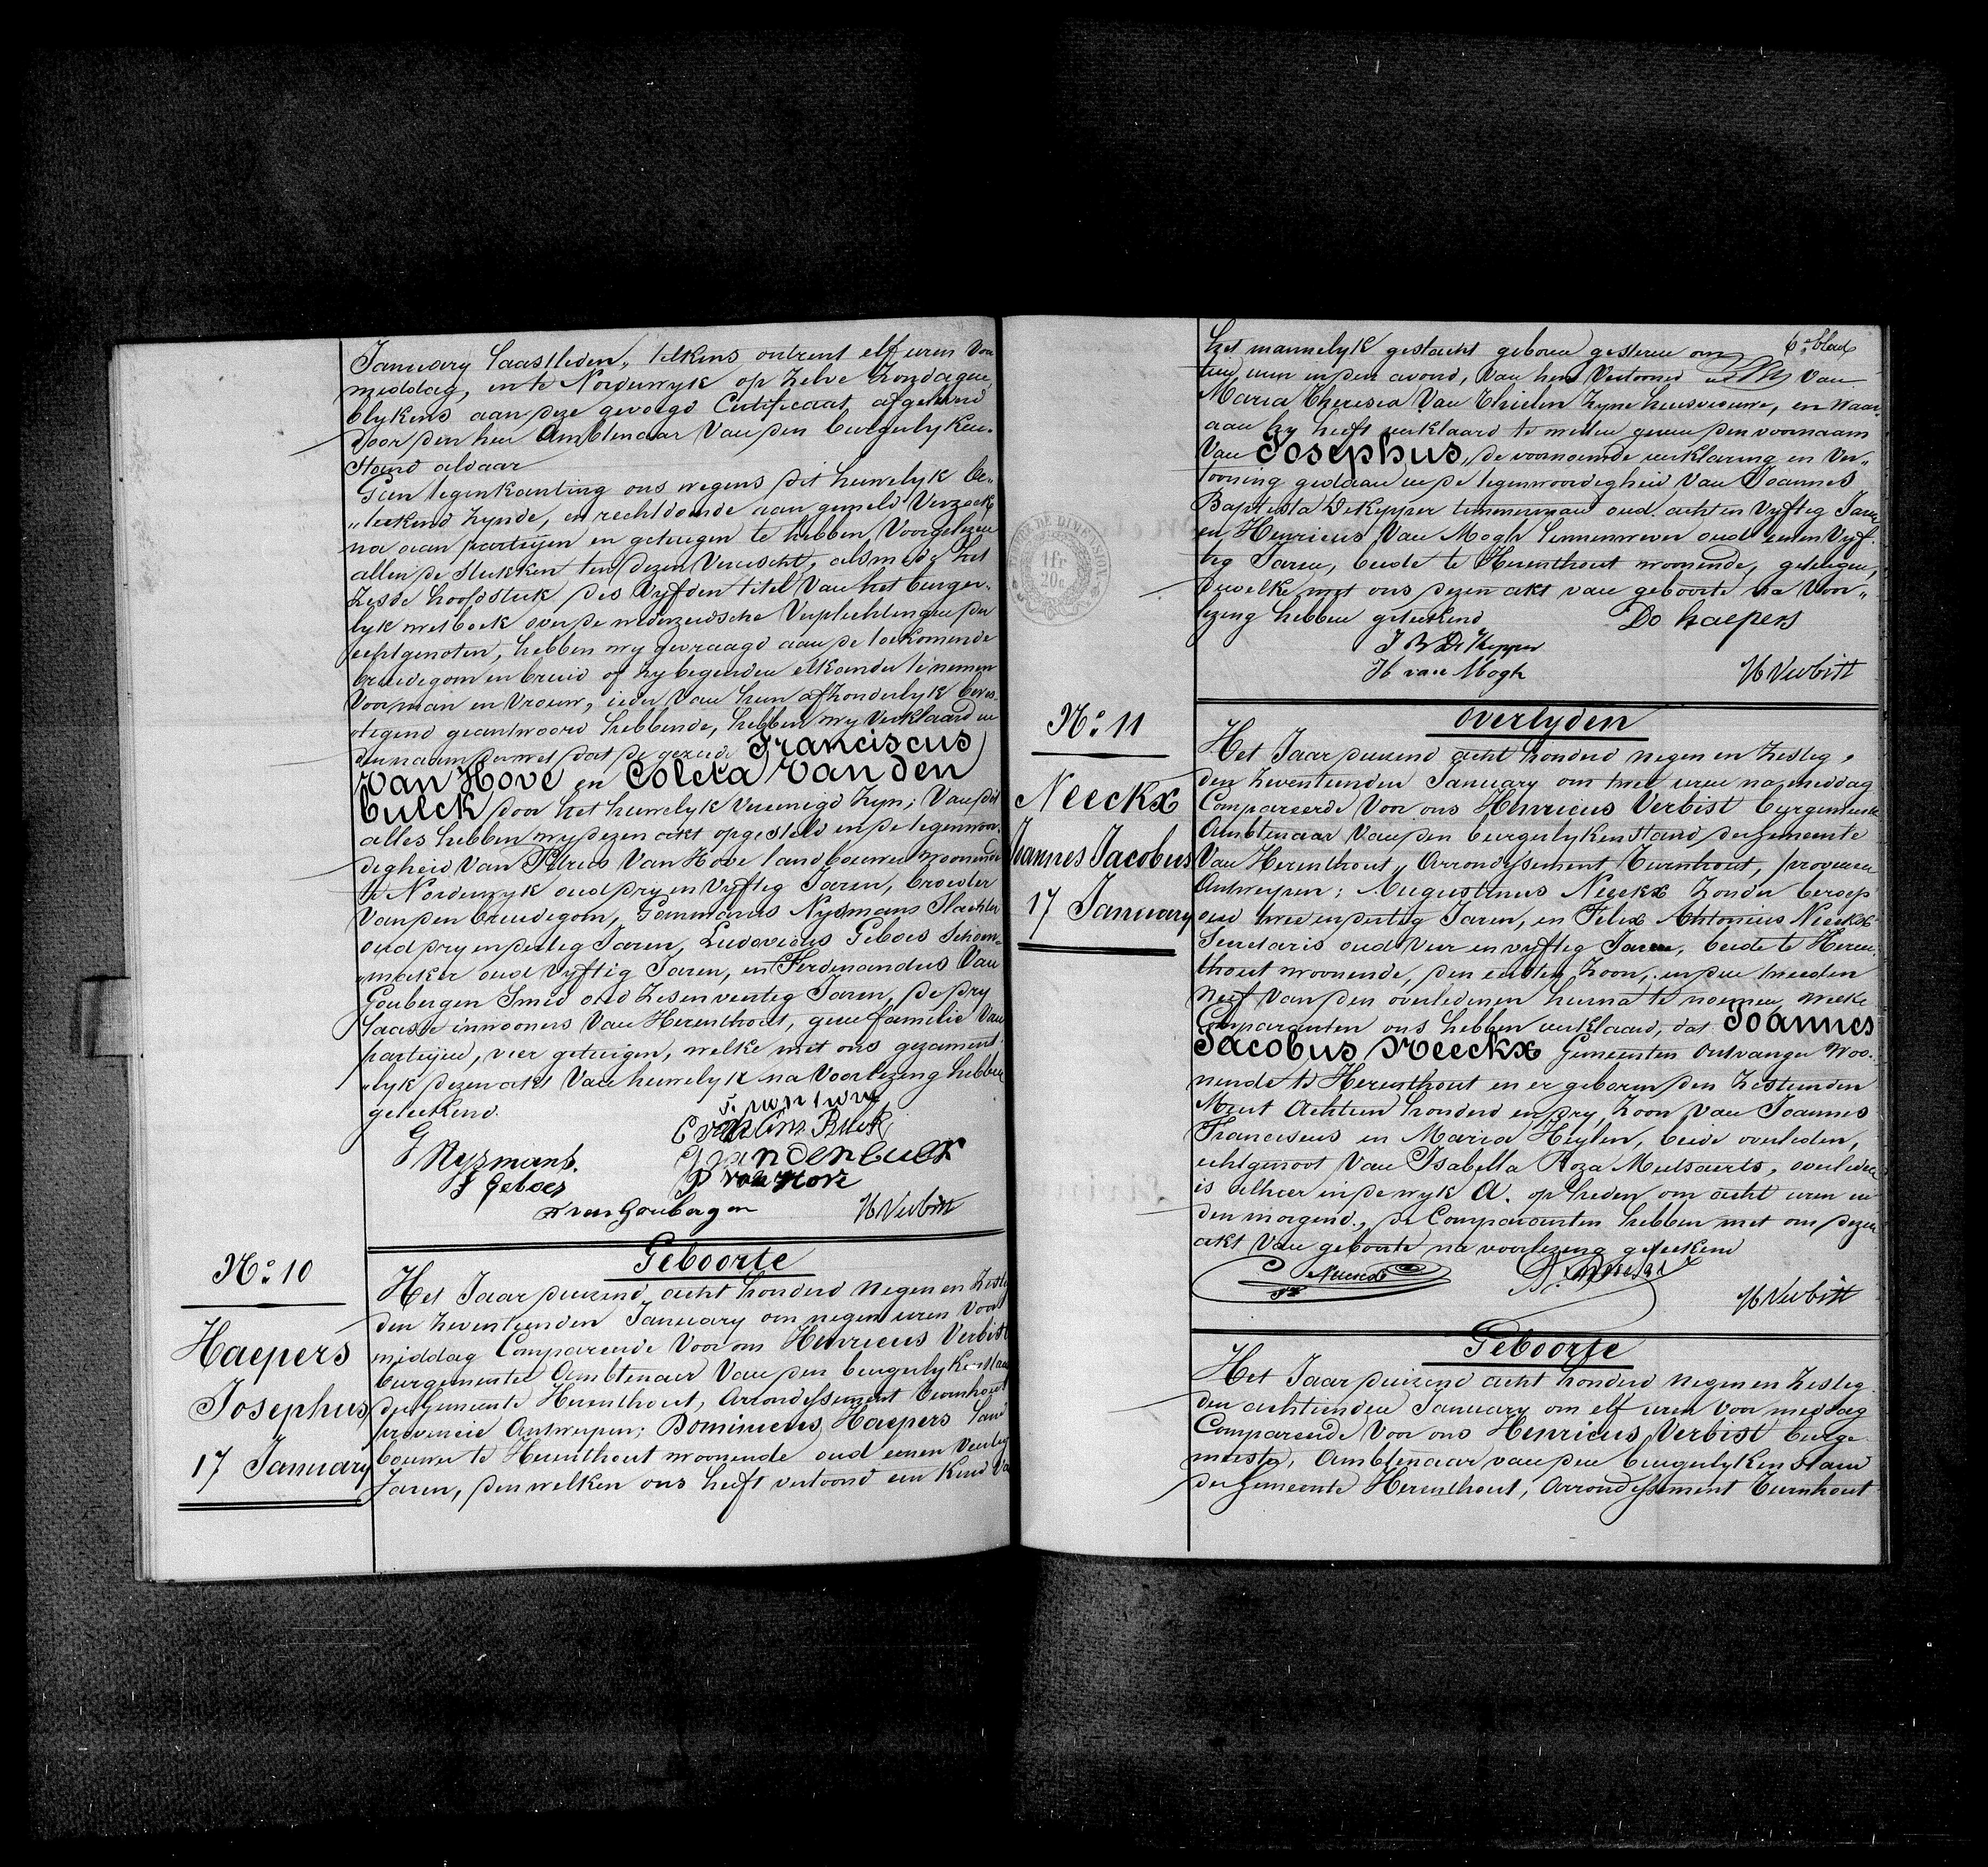 January laastleden, telkens ontrent elf uren voor
middag, en te Norderwyk op zelve Zondagen,
blykens aan deze gevoegd Certificaat afgeleverd
door den heer Ambtenaar van den burgerlyken
Stand aldaar
Geen tegenkanting ons wegens dit huwelyk be„
„teekend zynde, en rechtdoende aan gemeld Verzoek,
na aan partyen en getuigen te hebben Voorgelezen
allen de stukken ten dezen Vereischt, alsmede het
Zesde hoofdstuk des Vyfden titel van het burger„
lyk wetboek over de wederzeidsche Verplichtingen der
echtgenoten, hebben wy gevraagd aan de toekomende
bruidegom en bruid of zy begeerden elkander te nemen
Voor man en Vrouw, ieder van hun afzonderlyk beves„
tigend geantwoord hebbende, hebben wy Verklaard in
den naam der wet dat de gezeide Franciscus
Van Hove en Coleta Van den
bulck door het huwelyk Vereenigd zyn; Van dit
alles hebben wy dezen akt opgesteld in de tegenwoor„
digheid van Petrus Van Hove landbouwer woonende
te Norderwyk oud dry en vyftig Jaren, broeder
van den bruidegom, Gummarus Nysmans Slachter
oud dry en dertig Jaren, Ludovicus Geboes Schoen„
„maker oud vyftig Jaren, en Ferdinandus Van
Goubergen Smid oud Zes en veertig Jaren, de dry
laaste inwooners van Herenthout, geen familie Van
partyen, vier getuigen, welke met ons gezament„
„lyk dezen akt Van huwelyk na Voorlezing hebben
geteekend.
G Nysmans.
G Vandenbulck
L Geboes
P van Hove
F van Goubergen
H Verbist
Geboorte
N.o 10
Haepers
Josephus
17 January
Het Jaar duizend acht honderd negen en Zestig
den Zeventienden January om negen uren voor
middag Compareerde Voor ons Henricus Verbist
burgemeester Ambtenaar Van den burgerlyken stand
der gemeente Herenthout, Arrondissement Turnhout
provincie Antwerpen; Dominicus Haepers land
bouwer te Herenthout woonende oud eenen Veertig
Jaren, den welken ons heeft vertoond een Kind Van
6.e blad
het mannelyk geslacht geboren gisteren om
tien uren in den avond, van hem Vertooner en van
Maria Theresia Van Thielen zyne huisvrouwe, en waar„
aan hy heeft verklaard te willen geven den voornaam
Van Josephus, de voornoemde verklaring en Ver„
tooning gedaan in de tegenwoordigheid van Joannes
Baptista Dekepper timmerman oud acht en Vyftig Jaren
en Henricus Van Mogh linnenwever oud eenen Vyf„
tig Jaren, beide te Herenthout woonende, getuigen,
dewelke met ons dezen akt van geboorte na Voor„
lezing hebben geteekend
Do haepers
J B De Kepper
H van Mogh
H Verbist
N.o 11
Neeckx
Joannes Jacobus
17 January
Overlyden
Het Jaar duizend acht honderd negen en Zestig,
den Zeventienden January om twee uren na middag
Compareerde Voor ons Henricus Verbist burgemeester
Ambtenaar van den burgerlyken stand der gemeente
Van Herenthout, Arrondissement Turnhout, provincie
Antwerpen; Augustinus Neeckx Zonder beroep
oud twee en dertig Jaren, en Felix Antonius Neeckx
Secretaris oud Vier en vyftig Jaren, beide te Heren„
thout woonende, den eersten Zoon, en den tweeden
neef van den overledenen hierna te noemen, welke
Comparanten ons hebben verklaard, dat Joannes
Jacobus Neeckx Gemeenten Ontvanger woo„
nende te Herenthout en er geboren den Zestienden
Meert Achtien honderd en dry, Zoon van Joannes
Franciscus en Maria Heylen, beide overleden,
echtgenoot Van Isabella Roza Meulsaerts, overleden
is alhier in de wyk A. op heden om acht uren in
den morgend, de Comparanten hebben met ons dezen
akt Van geboorte na voorlezing geteekend
H Verbist
Geboorte
Het Jaar duizend acht honderd negen en Zestig
den achtienden January om elf uren voor middag
Compareerde Voor ons Henricus Verbist burge„
meester, Ambtenaar van den burgerlyken stand
der gemeente Herenthout, Arrondissement Turnhout